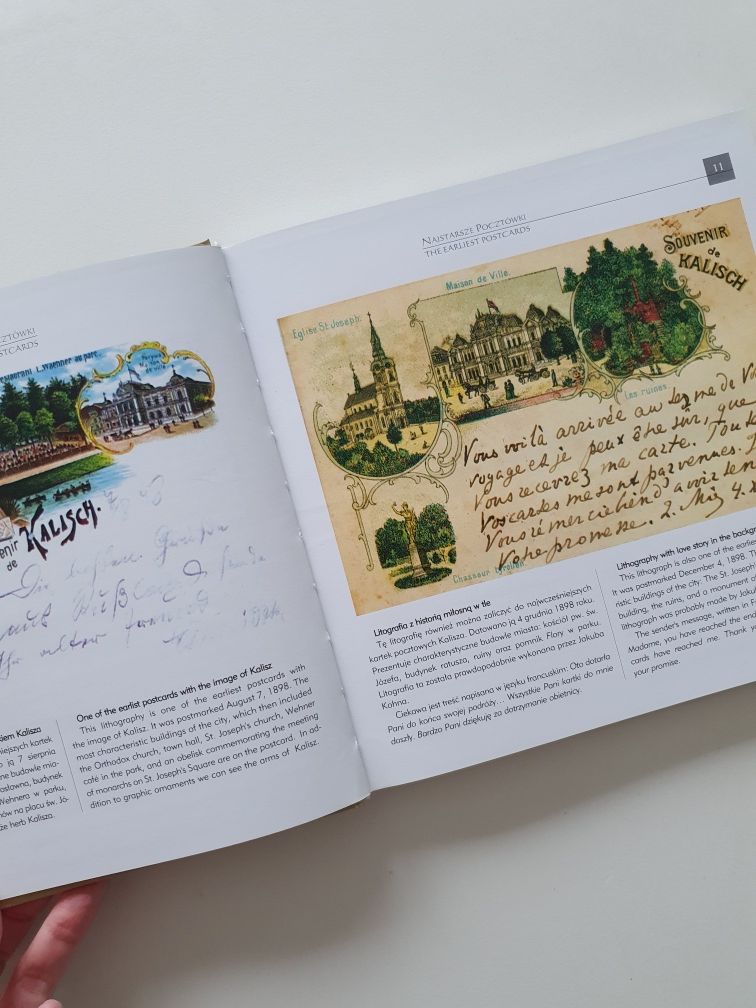 CZTÓWKI
STCARDS
estaurant L. Waehner au parc.
de ville
Kalisch.
nir
de
iem Kalisza
niejszych kartek
o ją 7 sierpnia
ne budowle mia-
osławna, budynek
Wehnera w parku,
hów na placu św. Jó-
że herb Kalisza.
One of the earlist postcards with the image of Kalisz
This lithography is one of the earliest postcards with
the image of Kalisz. It was postmarked August 7, 1898. The
most characteristic buildings of the city, which then included
the Orthodox church, town hall, St. Joseph's church, Wehner
café in the park, and an obelisk commemorating the meeting
of monarchs on St. Joseph's Square are on the postcard. In ad-
dition to graphic ornaments we can see the arms of Kalisz.
11
NAJSTARSZE POCZTÓWKI
THE EARLIEST POSTCARDS
Eglise St Joseph.
Maison de Ville.
SOUVENIR
de
KALISCH
Les ruines
Chasseur tyrolien
Vous voilà arrivée au terme de
voyage et je peux être sûr, que
Vous recevrez ma carte.
Vos cartes me sont parvenues.
Vous remercie
Votre promesse.
Litografia z historią miłosną w tle
Tę litografię również można zaliczyć do najwcześniejszych
kartek pocztowych Kalisza. Datowano ją 4 grudnia 1898 roku.
Prezentuje charakterystyczne budowle miasta: kościół pw. św.
Józefa, budynek ratusza, ruiny oraz pomnik Flory w parku.
Litografia ta została prawdopodobnie wykonana przez Jakuba
Kohna.
Ciekawa jest treść napisana w języku francuskim: Oto dotarła
Pani do końca swojej podróży... Wszystkie Pani kartki do mnie
doszły. Bardzo Pani dziękuję za dotrzymanie obietnicy.
Lithography with love story in the backgr
This lithograph is also one of the earlies
It was postmarked December 4, 1898. T
ristic buildings of the city: The St. Joseph
building, the ruins, and a monument of
lithograph was probably made by Jakub
The sender's message, written in F
Madame, you have reached the end
cards have reached me. Thank yo
your promise.